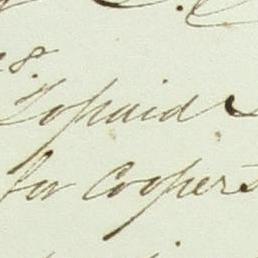 8
To paid
for Coopers